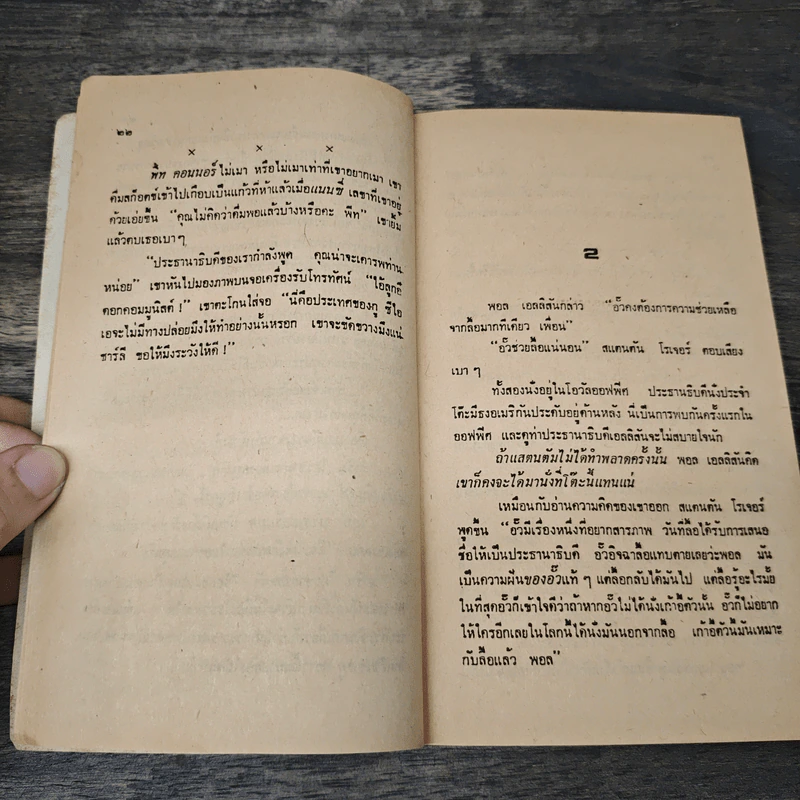 ๒๒
× × ×
พีท คอนนอร์ ไม่เมา หรือไม่เมาเท่าที่เขาอยากเมา เขา
ดื่มสก็อตช์เข้าไปเกือบเป็นแก้วที่ห้าแล้วเมื่อแนนซี่ เลขาที่เขาอยู่
ด้วยเอ่ยขึ้น “คุณไม่คิดว่าดื่มพอแล้วบ้างหรือคะ พีท” เขายิ้ม
แล้วตบเธอเบาๆ
“ประธานาธิบดีของเรากำลังพูด คุณน่าจะเคารพท่าน
หน่อย” เขาหันไปมองภาพบนจอเครื่องรับโทรทัศน์ “ไอ้ลูกดี
ดอกคอมมูนิสต์ !” เขาตะโกนใส่จอ “นี่คือประเทศของกู ซีไอ
เอจะไม่มีทางปล่อยมึงให้ทำอย่างนั้นหรอก เขาจะขัดขวางมึงแน่
ชาร์ลี ขอให้มึงระวังให้ดี !”
2
พอล เอลลิสันกล่าว “อั๊วคงต้องการความช่วยเหลือ
จากลื้อมากทีเดียว เพื่อน”
“อั๊วช่วยลื้อแน่นอน” สแตนตัน โรเจอร์ ตอบเสียง
เบา ๆ
ทั้งสองนั่งอยู่ในโอวัลออฟฟิศ ประธานาธิบดีนั่งประจำ
โต๊ะมีธงอเมริกันประดับอยู่ด้านหลัง นี่เป็นการพบกันครั้งแรกใน
ออฟฟิศ และดูท่าประธานาธิบดีเอลลิสันจะไม่สบายใจนัก
ถ้าแสตนตันไม่ได้ทำพลาดครั้งนั้น พอล เอลลิสันคิด
เขาก็คงจะได้มานั่งที่โต๊ะนี้แทนแน่
เหมือนกับอ่านความคิดของเขาออก สแตนตัน โรเจอร์
พูดขึ้น “อั๊วมีเรื่องหนึ่งที่อยากสารภาพ วันที่ลื้อได้รับการเสนอ
ชื่อให้เป็นประธานาธิบดี อั๊วอิจฉาลื้อแทบตายเลยว่ะพอล มัน
เป็นความฝันของอั๊วแท้ ๆ แต่ลื้อกลับได้มันไป แต่ลื้อรู้อะไรมั้ย
ในที่สุดอั๊วก็เข้าใจดีว่าถ้าหากอั๊วไม่ได้นั่งเก้าอี้ตัวนั้น อั๊วก็ไม่อยาก
ให้ใครอีกเลยในโลกนี้ได้นั่งมันนอกจากลื้อ เก้าอี้ตัวนี้มันเหมาะ
กับลื้อแล้ว พอล”